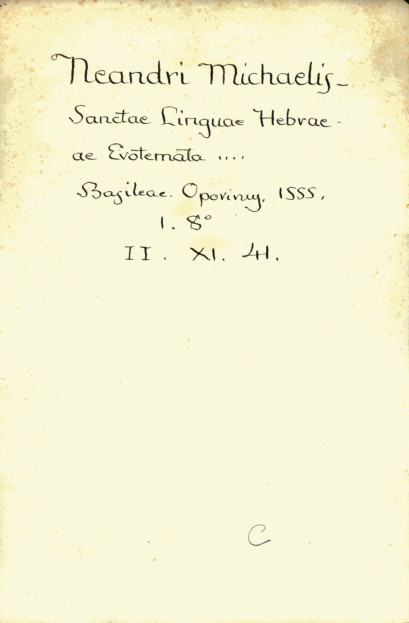 Neandri Michaelis_
Sanctae Linguae Hebrae-
ae Evōtemāta ....
Basileae. Oporinus, 1555,
1. 8°
II. XI. 41.
C